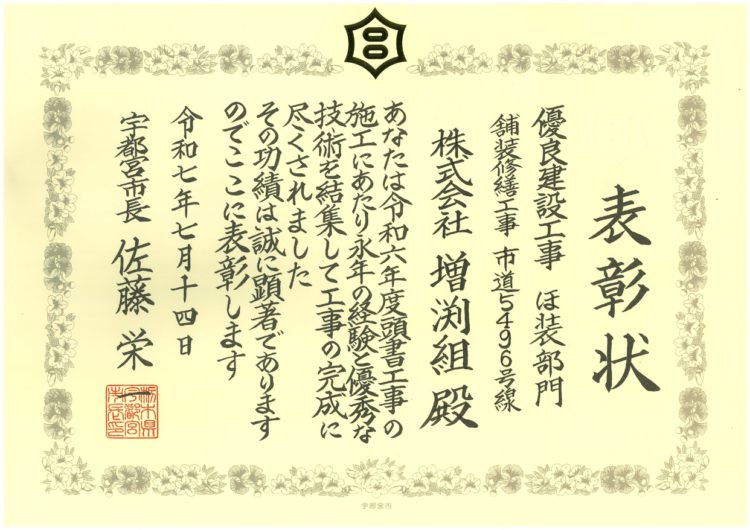 表彰状
優良建設工事 ほ装部門
舗装修繕工事 市道5496号線
株式会社 増渕組 殿
あなたは令和六年度頭書工事の
施工にあたり永年の経験と優秀な
技術を結集して工事の完成に
尽くされました
その功績は誠に顕著であります
のでここに表彰します
令和七年七月十四日
宇都宮市長 佐藤栄一
栃木県宇都宮市長之印
宇都宮市